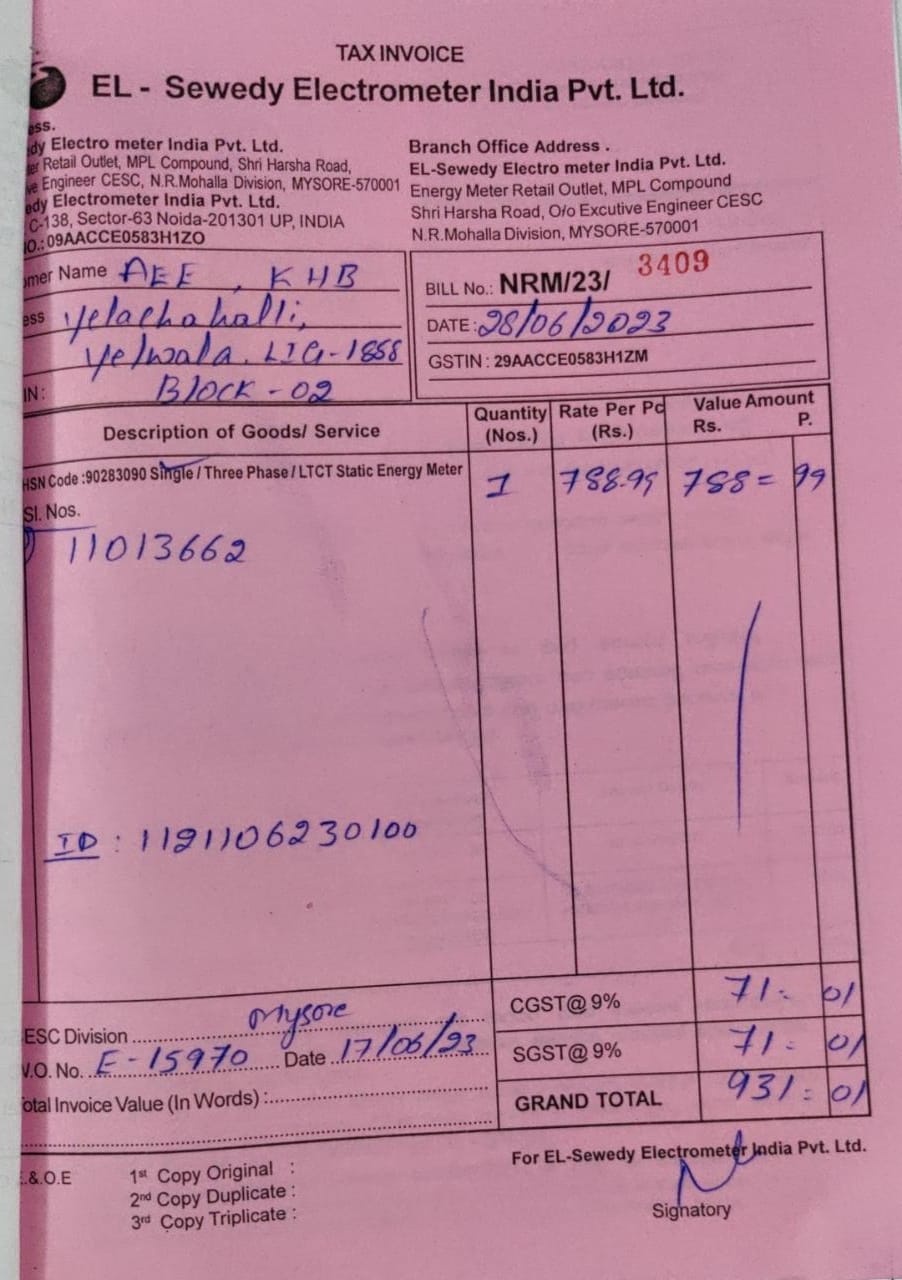 TAX INVOICE
EL - Sewedy Electrometer India Pvt. Ltd.
ess.
dy Electro meter India Pvt. Ltd.
er Retail Outlet, MPL Compound, Shri Harsha Road,
ve Engineer CESC, N.R.Mohalla Division, MYSORE-570001
edy Electrometer India Pvt. Ltd.
C-138, Sector-63 Noida-201301 UP, INDIA
O.: 09AACCE0583H1ZO
Branch Office Address .
EL-Sewedy Electro meter India Pvt. Ltd.
Energy Meter Retail Outlet, MPL Compound
Shri Harsha Road, O/o Excutive Engineer CESC
N.R.Mohalla Division, MYSORE-570001
omer Name AEE , KHB
ess Yelachahalli,
Yelwala. LIG-1858
IN: Block - 02
BILL No.: NRM/23/ 3409
DATE : 28/06/2023
GSTIN : 29AACCE0583H1ZM
Description of Goods/ Service Quantity (Nos.) Rate Per Pc (Rs.) Value Amount Rs. P.
HSN Code :90283090 Single / Three Phase / LTCT Static Energy Meter 1 788.99 788= 99
Sl. Nos.
11013662
ID : 1121106230100
CGST@ 9% 71- 01
SGST@ 9% 71- 01
GRAND TOTAL 931= 01
ESC Division Mysore
V.O. No. E-15970 Date 17/06/23
otal Invoice Value (In Words) :
For EL-Sewedy Electrometer India Pvt. Ltd.
Signatory
E.&.O.E 1st Copy Original :
2nd Copy Duplicate :
3rd Copy Triplicate :